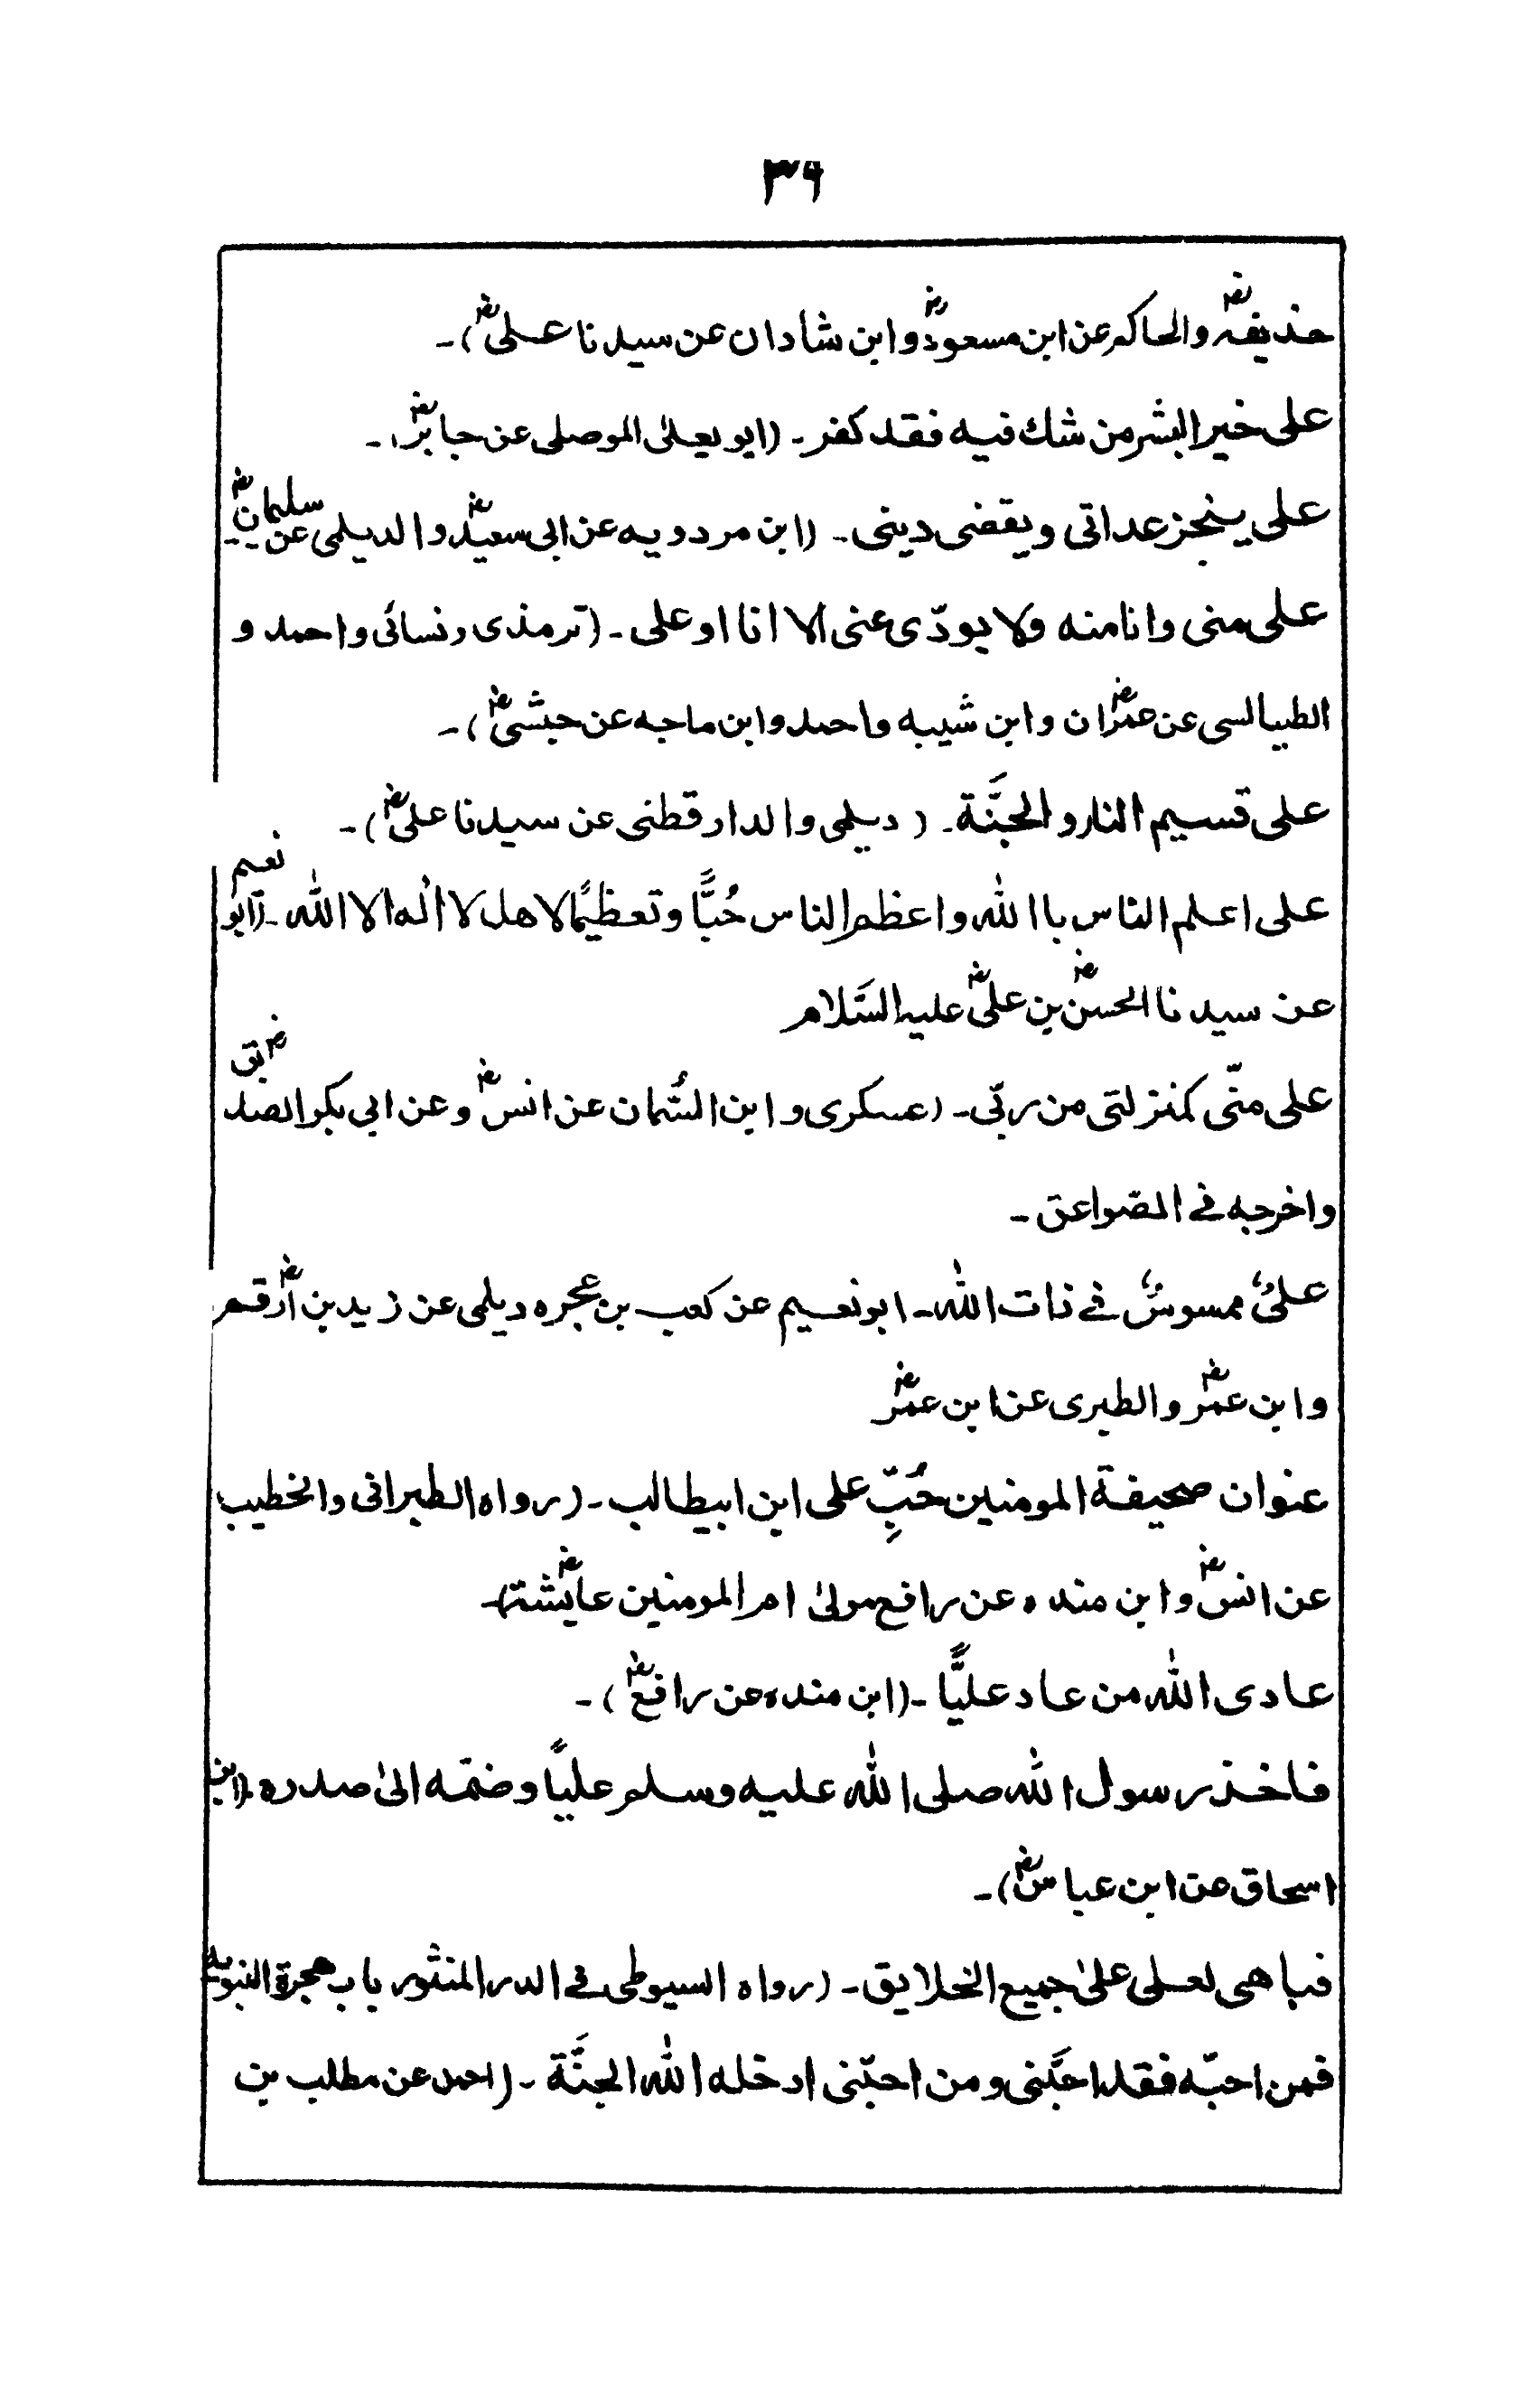 ۳۶
حذیفہؓ والحاکم عن ابن مسعودؓ وابن شاذان عن سیدنا علیؓ)۔
علی خیر البشر من شك فیه فقد کفر۔ (ابو یعلیٰ الموصلی عن جابرؓ)۔
علی ینجز عداتی ویقضی دینی۔ (ابن مردویه عن ابی سعیدؓ والدیلمی عن سلیمانؓ۔
علی منی وانا منه ولا یودّی عنی الا انا او علی۔ (ترمذی ونسائی واحمد و
الطیالسی عن عمرؓان وابن شیبه واحمد وابن ماجه عن حبشیؓ)۔
علی قسیم النار والجنَّة۔ (دیلمی والدارقطنی عن سیدنا علیؓ)۔
علی اعلم الناس باالله واعظم الناس حُبًّا وتعظیمًا لاهل لا اله الا الله۔ (ابو نعیم
عن سیدنا الحسنؓ بن علیؓ علیه السَّلام
علی منّی کمنزلتی من ربّی۔ (عسکری وابن السُّمان عن انسؓ وعن ابی بکر الصدیقؓ
واخرجه فے الصّواعق۔
علیٌ ممسوسٌ فے ذات الله۔ ابو نعیم عن کعب بن عجره دیلمی عن زید بن ارقمؓ
وابن عمرؓ والطبری عن ابن عمرؓ
عنوان صحیفة المومنین حُبِّ علی ابن ابیطالب۔ (رواه الطبرانی والخطیب
عن انسؓ وابن منده عن رافع مولیٰ ام المومنین عایشةؓ)۔
عادی الله من عاد علیًّا۔ (ابن منده عن رافعؓ)۔
فاخذ رسول الله صلی الله علیه وسلم علیًا وضمّه الیٰ صدره۔ (ابن
اسحاق عن ابن عباسؓ)۔
فباهی لعلی علیٰ جمیع الخلایق۔ (رواه السیوطی فے الدر المنثور باب هجرة النبویه
فمن احبّه فقد احبَّنی ومن احبّنی ادخله الله الجنَّة۔ (احمد عن مطلب بن